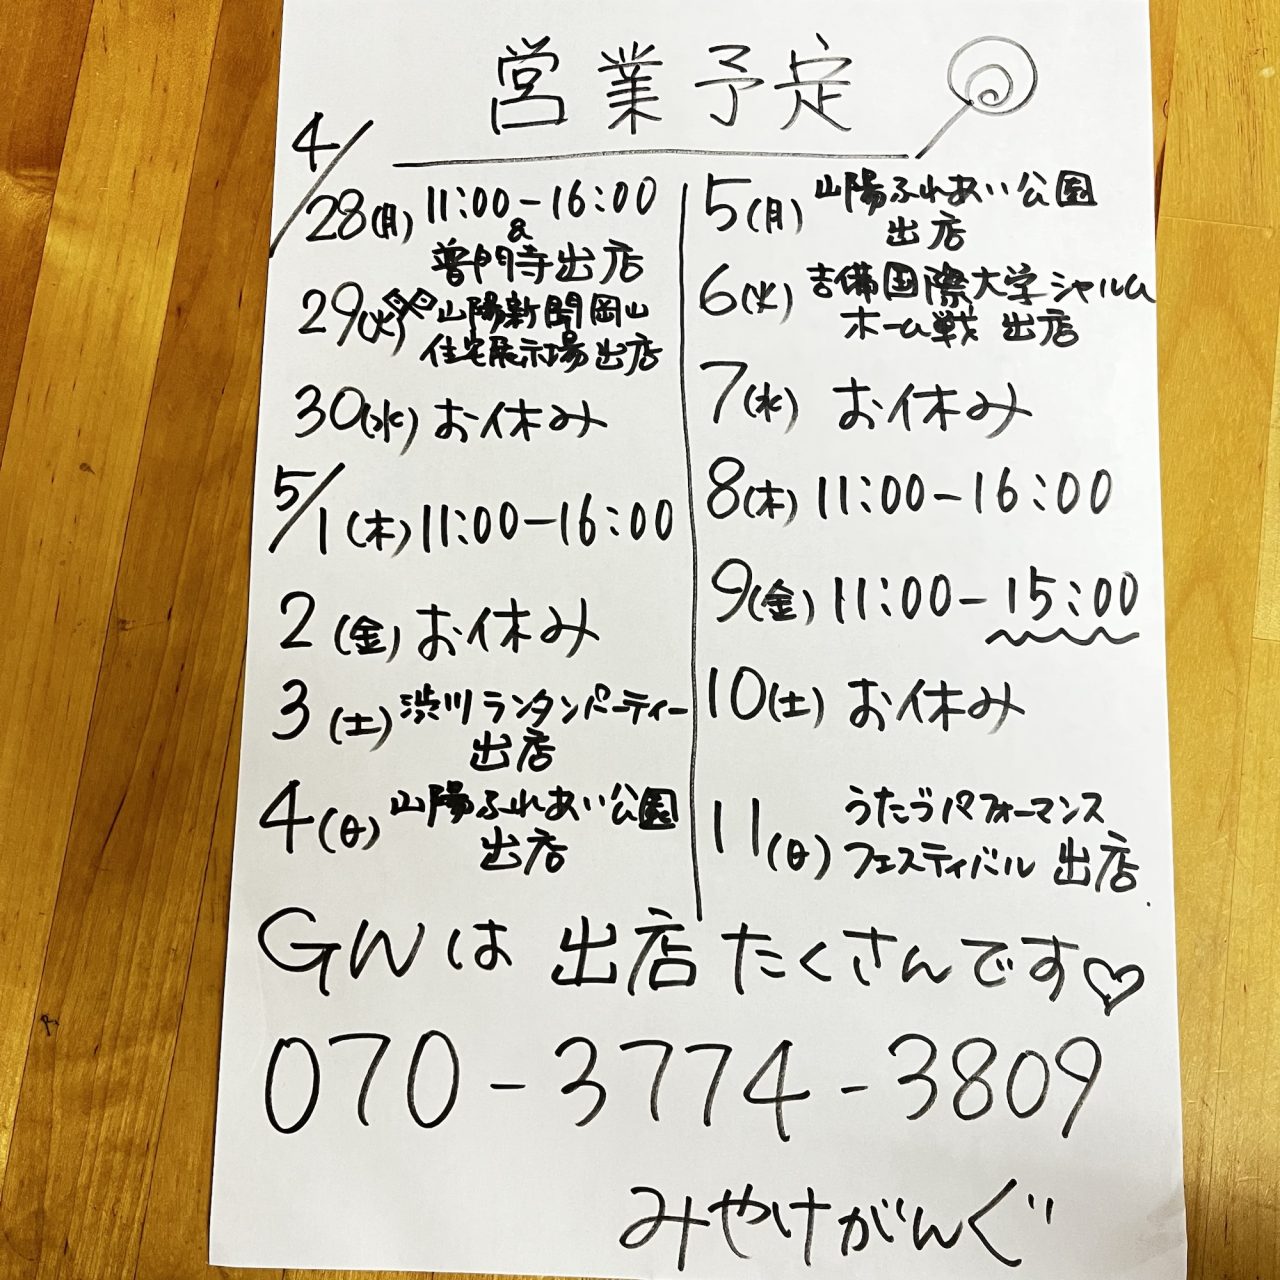 営業予定
4/
28(月) 11:00-16:00
&
普門寺出店
29(火) 山陽新聞岡山
住宅展示場出店
30(水) お休み
5/
1(木) 11:00-16:00
2(金) お休み
3(土) 渋川ランタンパーティー
出店
4(日) 山陽ふれあい公園
出店
5(月) 山陽ふれあい公園
出店
6(火) 吉備国際大学シャルム
ホーム戦 出店
7(水) お休み
8(木) 11:00-16:00
9(金) 11:00-15:00
10(土) お休み
11(日) うたづパフォーマンス
フェスティバル 出店
GWは出店たくさんです♡
070-3774-3809
みやけがんぐ